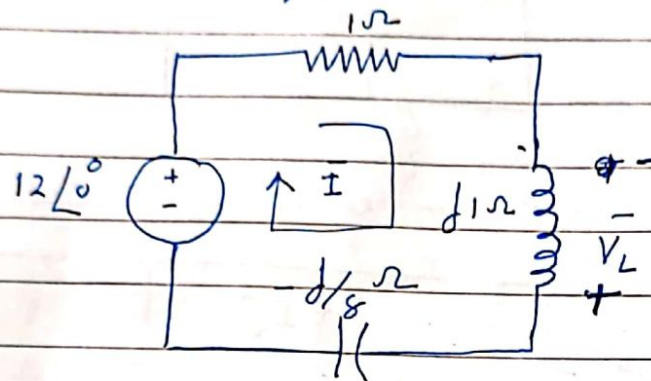 1Ω
+
12∠0°
-
I
j1Ω
-
-
V_L
+
-j/8 Ω